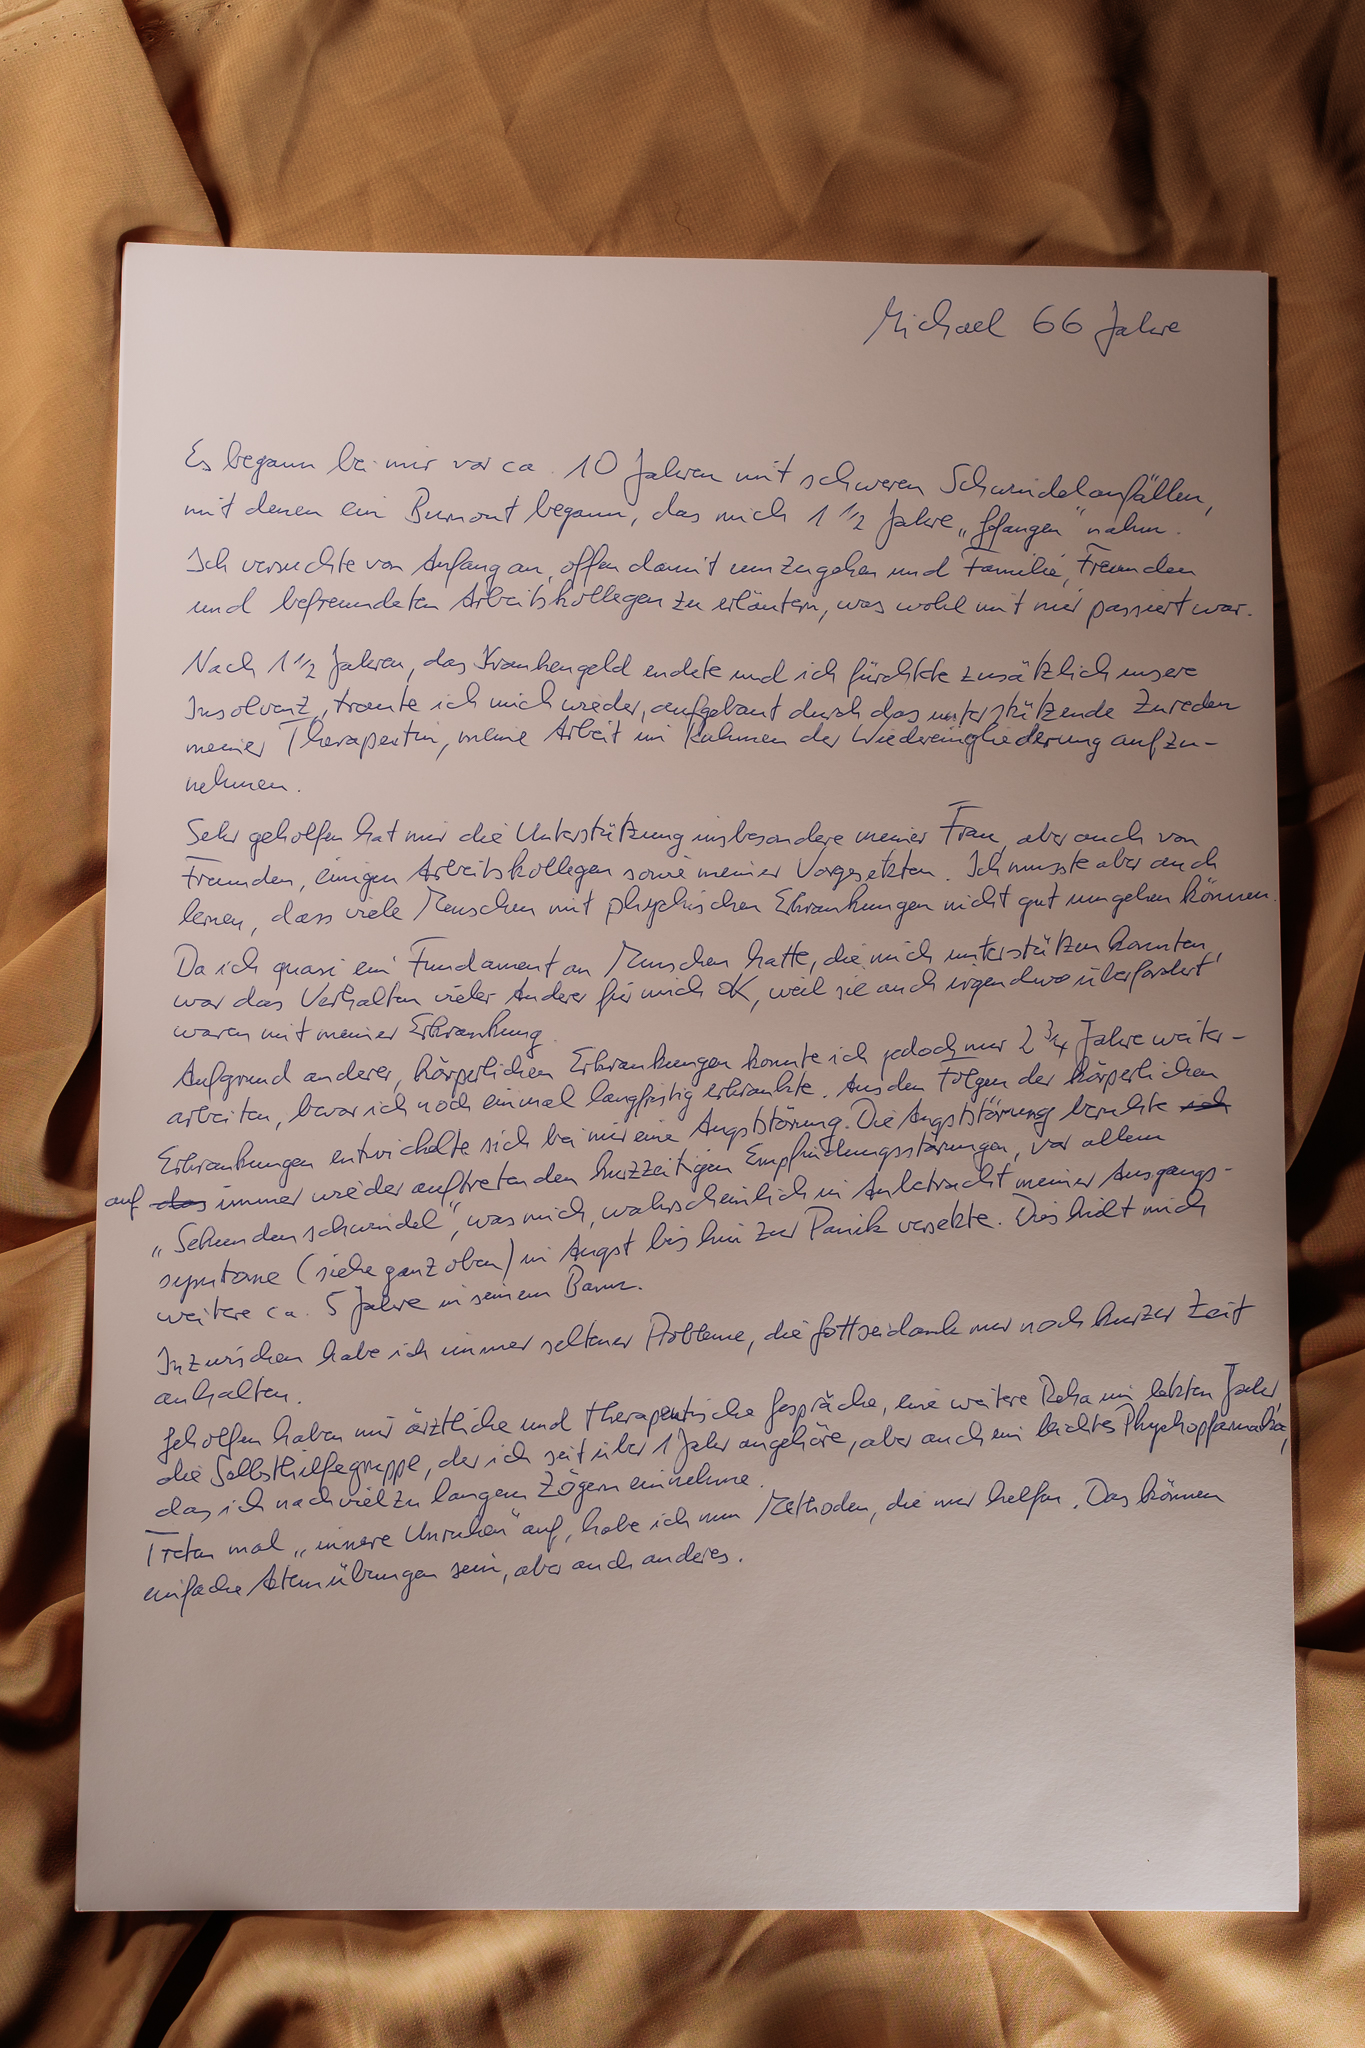 Michael 66 Jahre
Es begann bei mir vor ca. 10 Jahren mit schweren Schwindelanfällen,
mit denen ein Burnout begann, das mich 1 1/2 Jahre „gefangen“ nahm.
Ich versuchte von Anfang an, offen damit umzugehen und Familie, Freunden
und befreundeten Arbeitskollegen zu erläutern, was wohl mit mir passiert war.
Nach 1 1/2 Jahren, das Krankengeld endete und ich fürchtete zusätzlich unsere
Insolvenz, traute ich mich wieder, aufgebaut durch das unterstützende Zureden
meiner Therapeutin, meine Arbeit im Rahmen der Wiedereingliederung aufzu-
nehmen.
Sehr geholfen hat mir die Unterstützung insbesondere meiner Frau, aber auch von
Freunden, einigen Arbeitskollegen sowie meiner Vorgesetzten. Ich musste aber auch
lernen, dass viele Menschen mit phychischen Erkrankungen nicht gut umgehen können.
Da ich quasi ein Fundament an Menschen hatte, die mich unterstützen konnten,
war das Verhalten vieler Anderer für mich OK, weil sie auch irgendwo überfordert
waren mit meiner Erkrankung.
Aufgrund anderer, körperlichen Erkrankungen konnte ich jedoch nur 2 3/4 Jahre weiter-
arbeiten, bevor ich noch einmal langfristig erkrankte. Aus den Folgen der körperlichen
Erkrankungen entwickelte sich bei mir eine Angststörung. Die Angststörung beruhte sich
auf das immer wieder auftretenden kurzzeitigen Empfindungsstörungen, vor allem
„Sekundenschwindel“, was mich, wahrscheinlich in Anbetracht meiner Ausgangs-
symptome (siehe ganz oben) in Angst bis hin zur Panik versetzte. Dies hielt mich
weitere ca. 5 Jahre in seinem Bann.
Inzwischen habe ich immer seltener Probleme, die Gottseidank nur noch kurzer Zeit
anhalten.
Geholfen haben mir ärztliche und therapeutische Gespräche, eine weitere Reha im letzten Jahr,
die Selbsthilfegruppe, der ich seit über 1 Jahr angehöre, aber auch ein leichtes Phychopfarmaka,
das ich nach viel zu langem Zögern einnehme.
Treten mal „innere Unruhen“ auf, habe ich nun Methoden, die mir helfen. Das können
einfache Atemübungen sein, aber auch anderes.